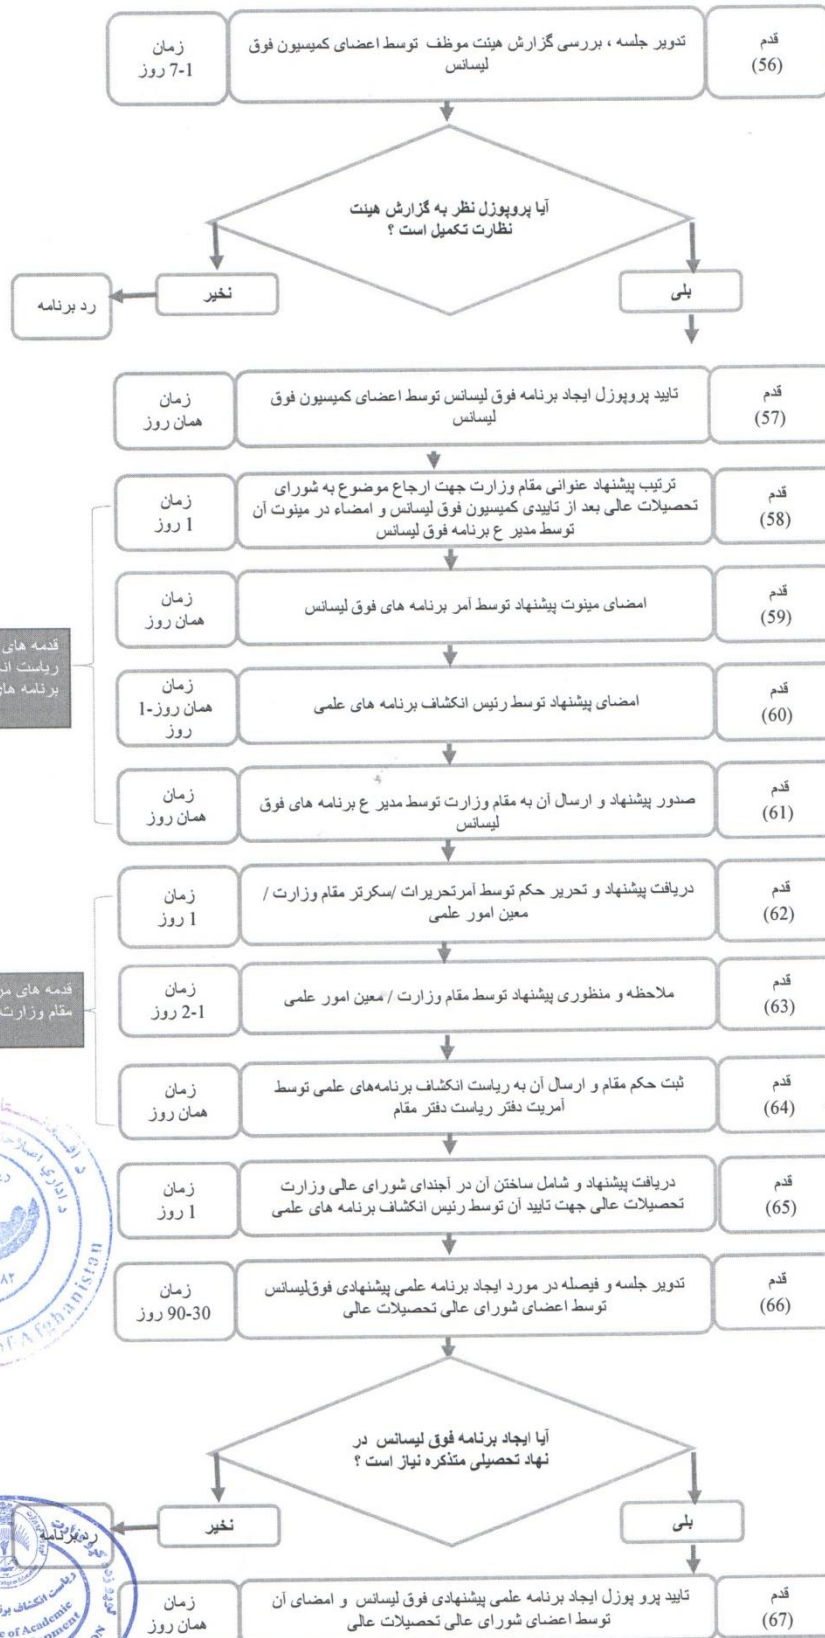 قدم
(56)
تدویر جلسه ، بررسی گزارش هیئت موظف توسط اعضای کمیسیون فوق
لیسانس
زمان
7-1 روز
آیا پروپوزل نظر به گزارش هیئت
نظارت تکمیل است ؟
بلی
نخیر
رد برنامه
قدم
(57)
تایید پروپوزل ایجاد برنامه فوق لیسانس توسط اعضای کمیسیون فوق
لیسانس
زمان
همان روز
قدم
(58)
ترتیب پیشنهاد عنوانی مقام وزارت جهت ارجاع موضوع به شورای
تحصیلات عالی بعد از تاییدی کمیسیون فوق لیسانس و امضاء در مینوت آن
توسط مدیر ع برنامه فوق لیسانس
زمان
1 روز
قدم
(59)
امضای مینوت پیشنهاد توسط آمر برنامه های فوق لیسانس
زمان
همان روز
قدمه های
ریاست
برنامه
قدم
(60)
امضای پیشنهاد توسط رئیس انکشاف برنامه های علمی
زمان
همان روز-1
روز
قدم
(61)
صدور پیشنهاد و ارسال آن به مقام وزارت توسط مدیر ع برنامه های فوق
لیسانس
زمان
همان روز
قدم
(62)
دریافت پیشنهاد و تحریر حکم توسط آمرتحریرات /سکرتر مقام وزارت /
معین امور علمی
زمان
1 روز
قدم
(63)
ملاحظه و منظوری پیشنهاد توسط مقام وزارت / معین امور علمی
زمان
2-1 روز
قدمه های
مقام وزارت
قدم
(64)
ثبت حکم مقام و ارسال آن به ریاست انکشاف برنامه‌های علمی توسط
آمریت دفتر ریاست دفتر مقام
زمان
همان روز
قدم
(65)
دریافت پیشنهاد و شامل ساختن آن در آجندای شورای عالی وزارت
تحصیلات عالی جهت تایید آن توسط رئیس انکشاف برنامه های علمی
زمان
1 روز
of Afghanistan
قدم
(66)
تدویر جلسه و فیصله در مورد ایجاد برنامه علمی پیشنهادی فوق‌لیسانس
توسط اعضای شورای عالی تحصیلات عالی
زمان
90-30 روز
آیا ایجاد برنامه فوق لیسانس در
نهاد تحصیلی متذکره نیاز است ؟
بلی
نخیر
رد برنامه
ریاست انکشاف
of Academic
قدم
(67)
تایید پرو پوزل ایجاد برنامه علمی پیشنهادی فوق لیسانس و امضای آن
توسط اعضای شورای عالی تحصیلات عالی
زمان
همان روز